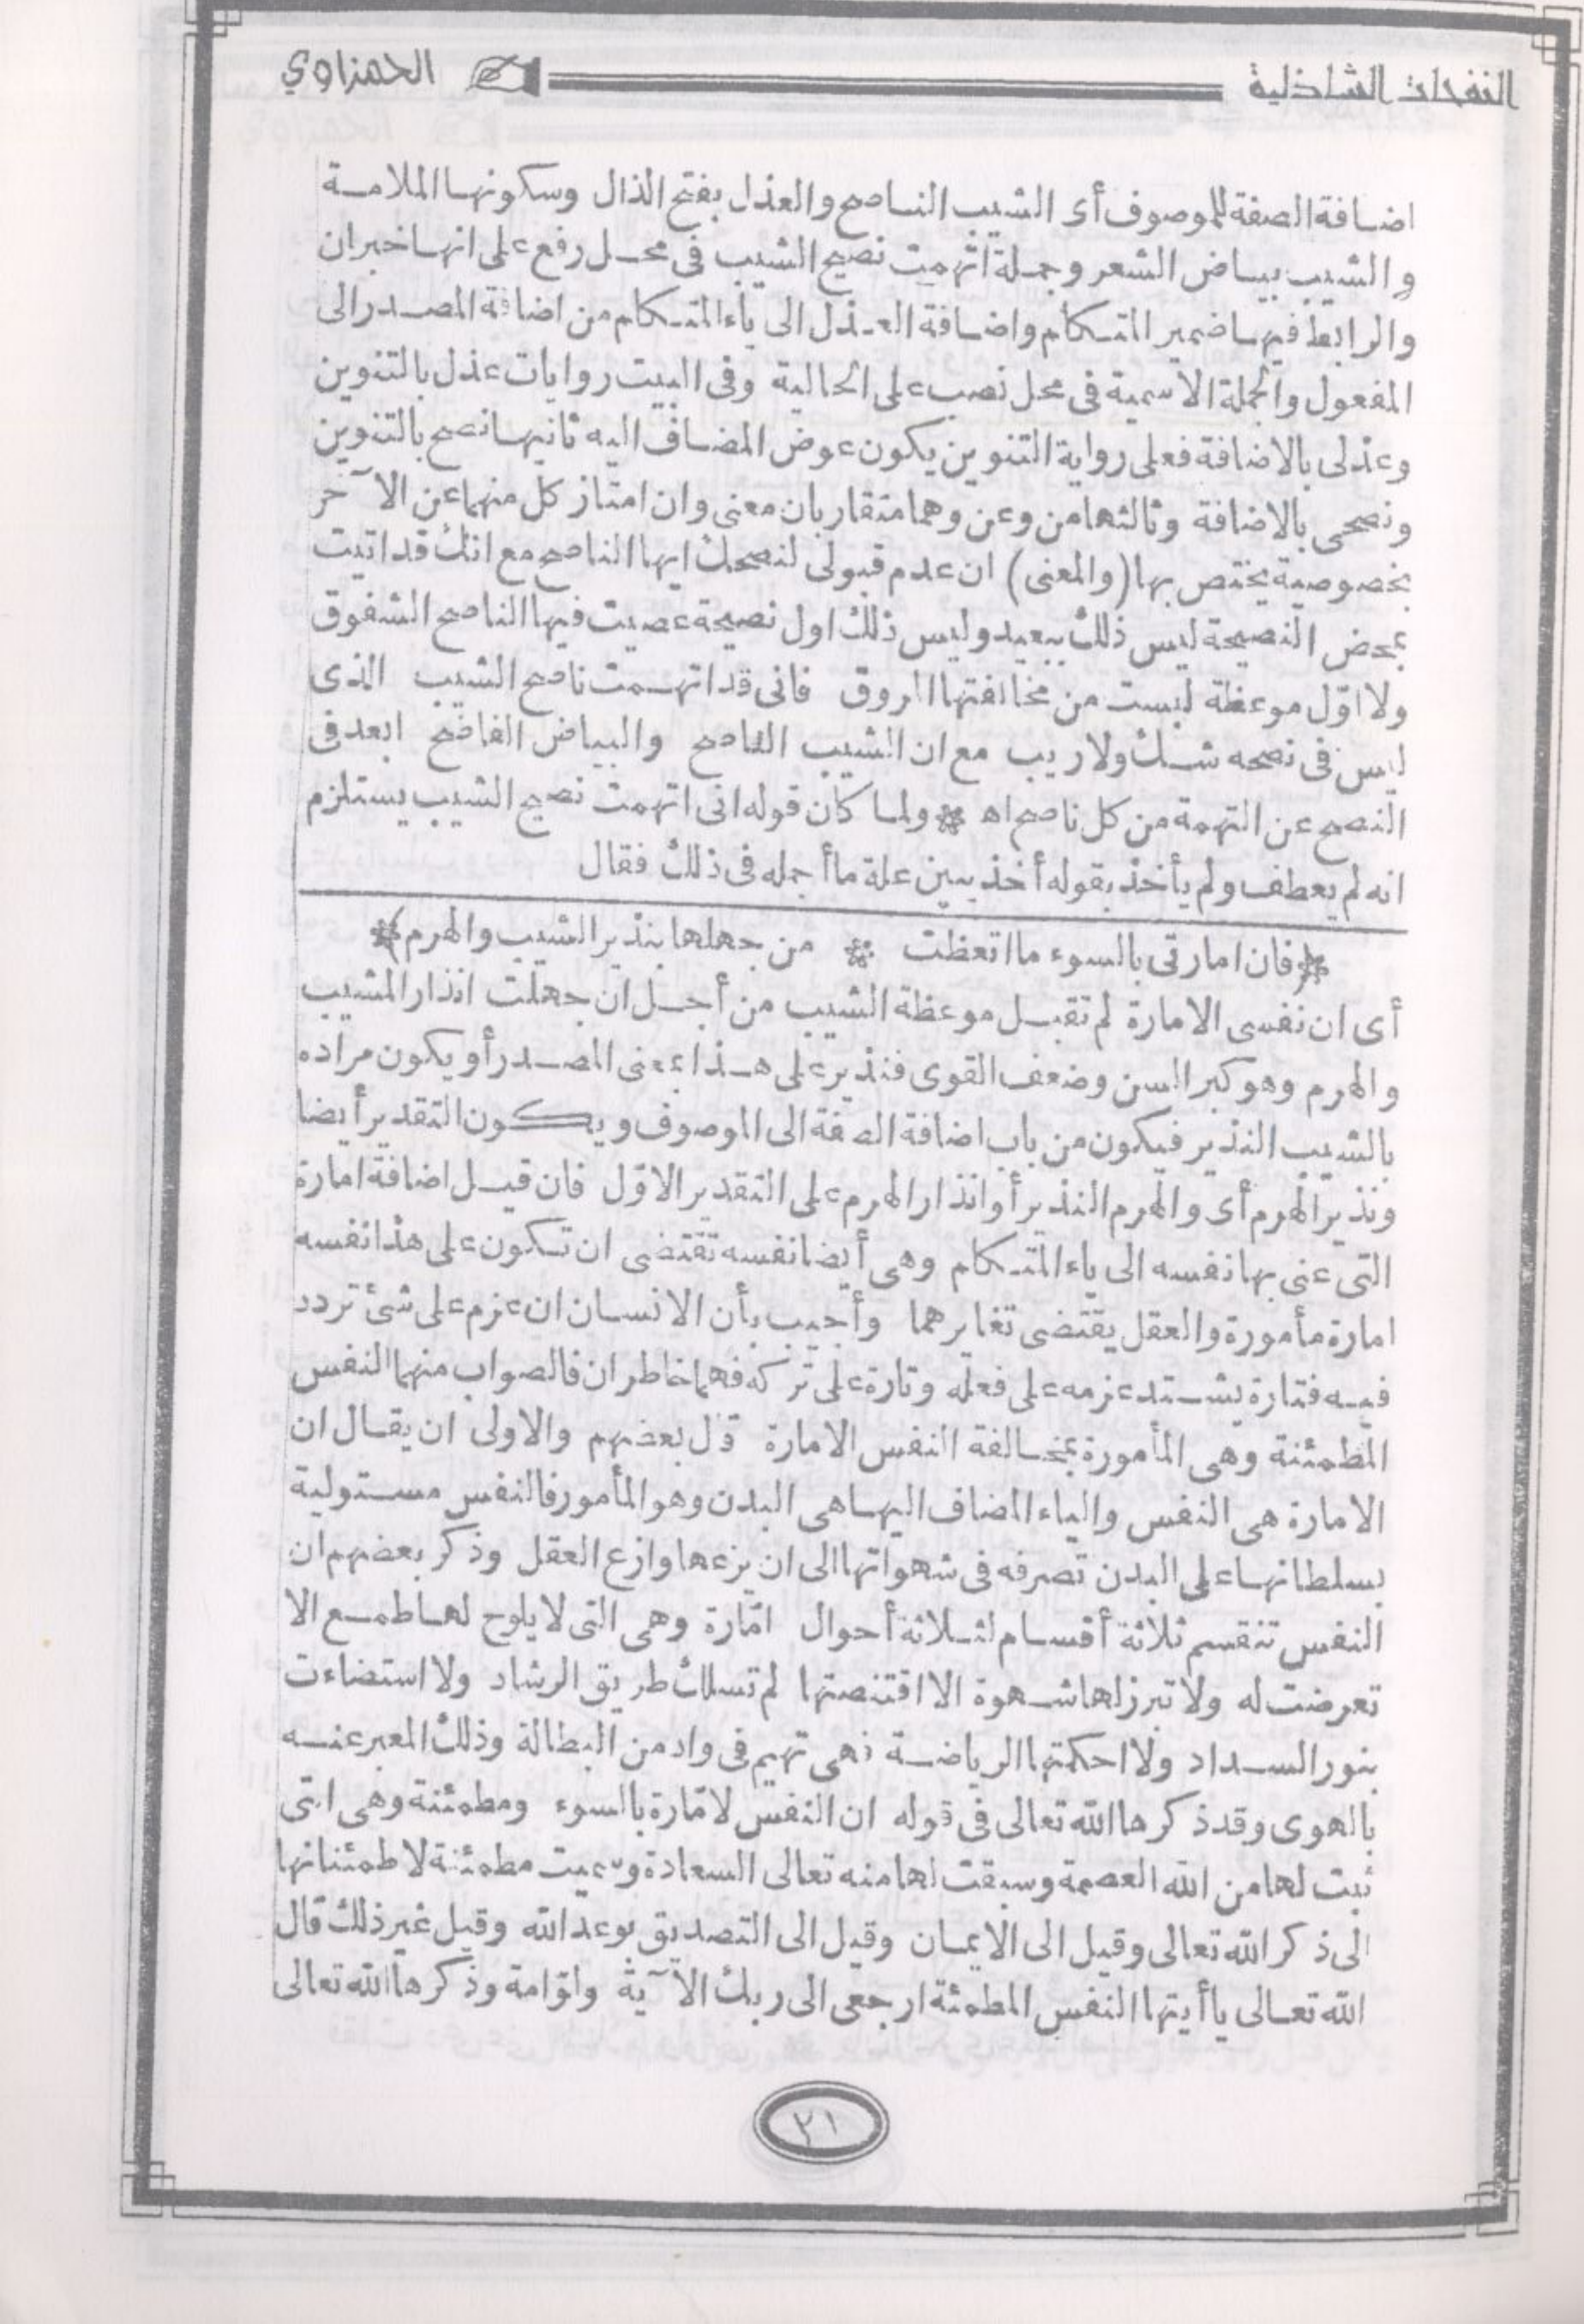 النفحات الشاذلية
الحمزاوي
اضافة الصفة للموصوف أى الشيب الناصح والعذل بفتح الذال وسكونها الملامة
والشيب بياض الشعر وجملة اتهمت نصيح الشيب فى محل رفع على انها خبر ان
والرابط فيها ضمير المتكلم واضافة العذل الى ياء المتكلم من اضافة المصدر الى
المفعول والجملة الاسمية فى محل نصب على الحالية وفى البيت روايات عذل بالتنوين
وعذلى بالاضافة فعلى رواية التنوين يكون عوض المضاف اليه ثانيها نصح بالتنوين
ونصحى بالاضافة وثالثها من وعن وهما متقاربان معنى وان امتاز كل منهما عن الآخر
بخصوصية يختص بها (والمعنى) ان عدم قبولى لنصحك ايها الناصح مع انك قد اتيت
بمحض النصيحة ليس ذلك ببعيد وليس ذلك اول نصيحة عصيت فيها الناصح الشفوق
ولا اوّل موعظة لبست من مخالفتها الروق فانى قد اتهمت ناصح الشيب الذى
ليس فى نصحه شك ولا ريب مع ان الشيب الناصح والبياض الفاضح ابعد فى
النصح عن التهمة من كل ناصح اه * ولما كان قوله انى اتهمت نصيح الشيب يستلزم
انه لم يعطف ولم يأخذ بقوله أخذ يبين علة ما أجمله فى ذلك فقال
*(فان امارتى بالسوء ما اتعظت * من جهلها بنذير الشيب والهرم)*
أى ان نفسى الامارة لم تقبل موعظة الشيب من أجل ان جهلت انذار المشيب
والهرم وهو كبر السن وضعف القوى فنذير على هذا بمعنى المصدر أو يكون مراده
بالشيب النذير فيكون من باب اضافة الصفة الى الموصوف ويكون التقدير أيضا
ونذير الهرم أى والهرم النذير أو انذار الهرم على التقدير الاوّل فان قيل اضافة امارة
التى عنى بها نفسه الى ياء المتكلم وهى أيضا نفسه تقتضى ان تكون على هذا نفسه
امارة مأمورة والعقل يقتضى تغايرهما وأجيب بأن الانسان ان عزم على شئ تردد
فيه فتارة يشتد عزمه على فعله وتارة على تركه فهما خاطران فالصواب منهما النفس
المطمئنة وهى المأمورة بمخالفة النفس الامارة قال بعضهم والاولى ان يقال ان
الامارة هى النفس والياء المضاف اليها هى البدن وهو المأمور فالنفس مستولية
بسلطانها على البدن تصرفه فى شهواتها الى ان يزعها وازع العقل وذكر بعضهم ان
النفس تنقسم ثلاثة أقسام لثلاثة أحوال امّارة وهى التى لا يلوح لها طمع الا
تعرضت له ولا تبرز لها شهوة الا اقتنصتها لم تسلك طريق الرشاد ولا استضاءت
بنور السداد ولا احكمتها الرياضة فهى تهيم فى واد من البطالة وذلك المعبر عنه
بالهوى وقد ذكرها الله تعالى فى قوله ان النفس لامّارة بالسوء ومطمئنة وهى التى
ثبت لها من الله العصمة وسبقت لها منه تعالى السعادة وسميت مطمئنة لاطمئنانها
الى ذكر الله تعالى وقيل الى الايمان وقيل الى التصديق بوعد الله وقيل غير ذلك قال
الله تعالى يا أيتها النفس المطمئنة ارجعى الى ربك الآية ولوّامة وذكرها الله تعالى
٢١